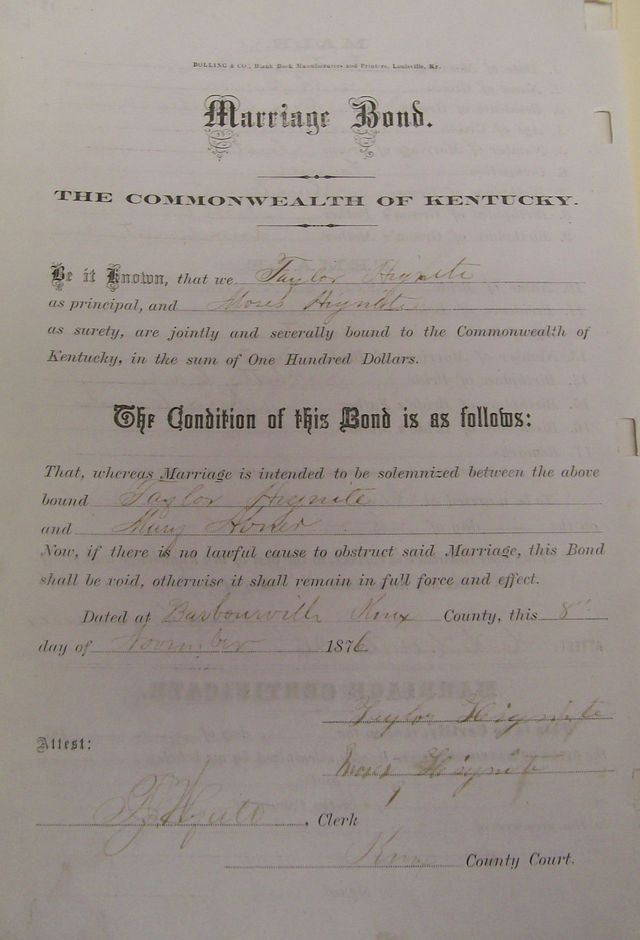 BOLLING & CO., Blank Book Manufacturers and Printers, Louisville, Ky.
Marriage Bond.
THE COMMONWEALTH OF KENTUCKY.
Be it Known, that we Taylor Hignite
as principal, and Moses Hignite
as surety, are jointly and severally bound to the Commonwealth of
Kentucky, in the sum of One Hundred Dollars.
The Condition of this Bond is as follows:
That, whereas Marriage is intended to be solemnized between the above
bound Taylor Hignite
and Mary
Now, if there is no lawful cause to obstruct said Marriage, this Bond
shall be void, otherwise it shall remain in full force and effect.
Dated at Barbourville Knox County, this 8"
day of November 1876
Taylor Hignite
Attest:
Moses Hignite
, Clerk
Knox County Court.
MARRIAGE CERTIFICATE.